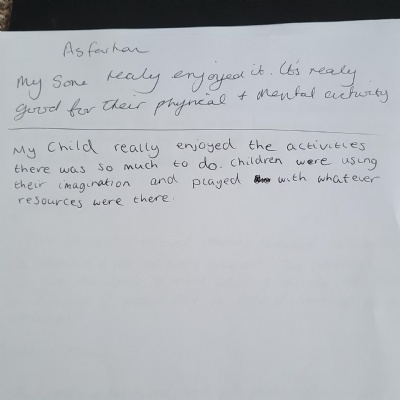 Asfarhan
My Sone realy enjoyed it. It's realy
good for their physical + mental activity
My Child really enjoyed the activities
there was so much to do. Children were using
their imagination and played with whatever
resources were there.